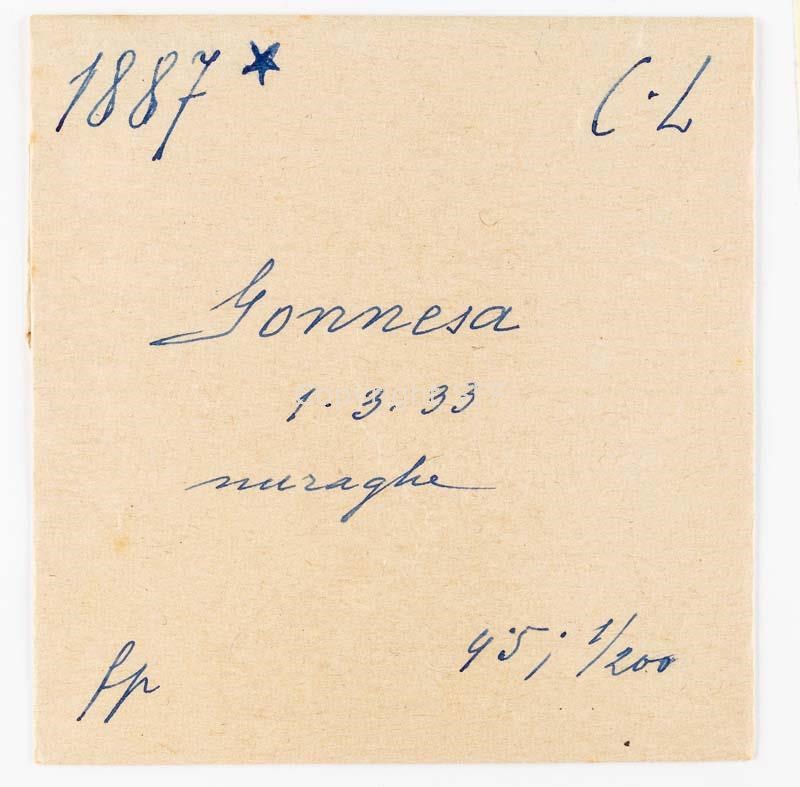 1887 * C.L
Gonnesa
1.3.33
nuraghe
fp 4.5; 1/200